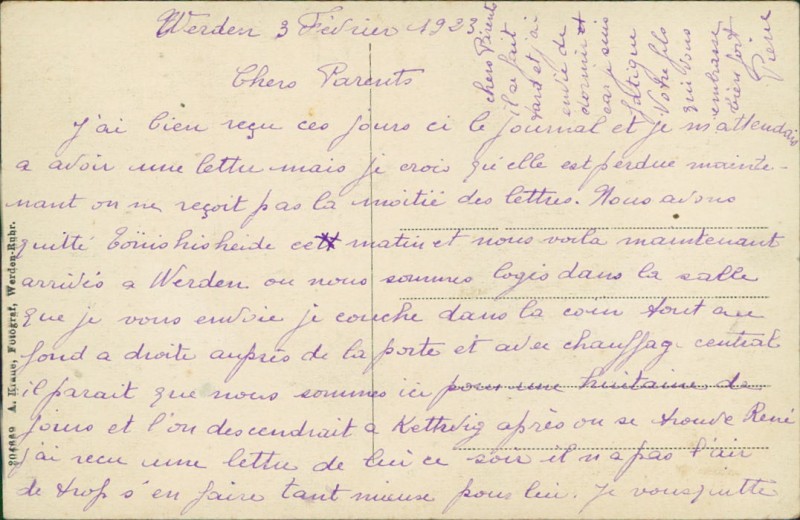 Werden 3 Février 1923
Chers Parents
J'ai bien reçu ces jours ci le journal et je m'attendais
a avoir une lettre mais je crois qu'elle est perdue mainte-
nant on ne reçoit pas la moitié des lettres. Nous avons
quitté Tönishisheide cett matin et nous voila maintenant
arrivés a Werden ou nous sommes logés dans la salle
que je vous envoie je couche dans la coin tout au
fond a droite auprès de la porte et avec chauffage central
il parait que nous sommes ici pour une huitaine de
jours et l'on descendrait a Kettwig après ou se trouve René
j'ai recu une lettre de lui ce soir il n'a pas l'air
de trop s'en faire tant mieux pour lui. Je vous quitte
chers Parents
il se fait
tard et j'ai
envie de
dormir et
car je suis
fatigué
Votre fils
qui vous
embrasse
bien fort
Pierre
204669 A. Krane, Fotograf, Werden-Ruhr.